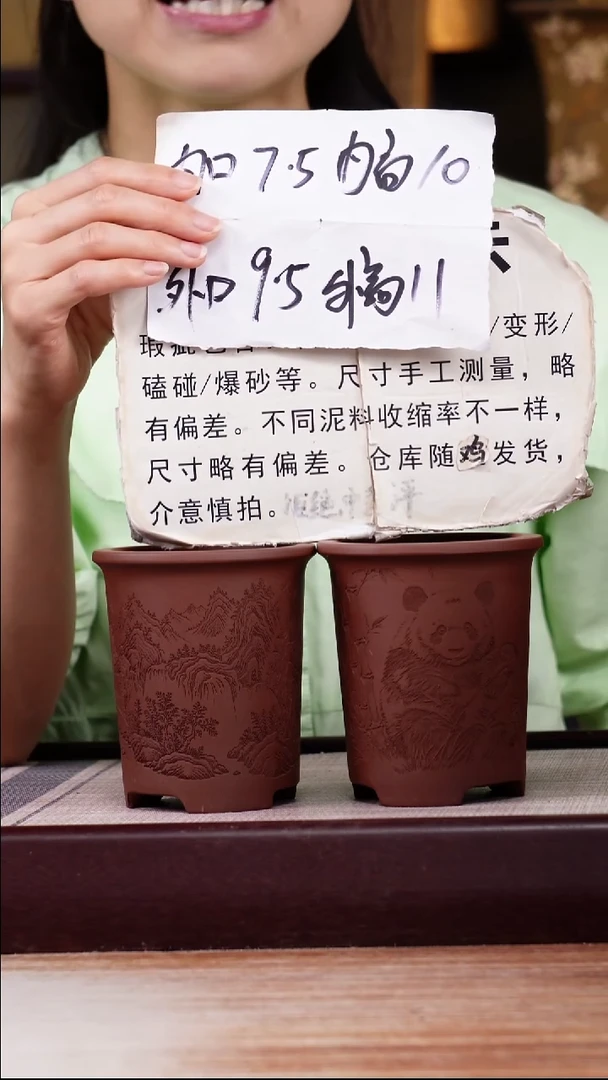 内口 7.5 内高 10
外口 9.5 外高 11
/变形/
瑕疵
磕碰/爆砂等。尺寸手工测量，略
有偏差。不同泥料收缩率不一样，
尺寸略有偏差。仓库随鸡发货，
介意慎拍。